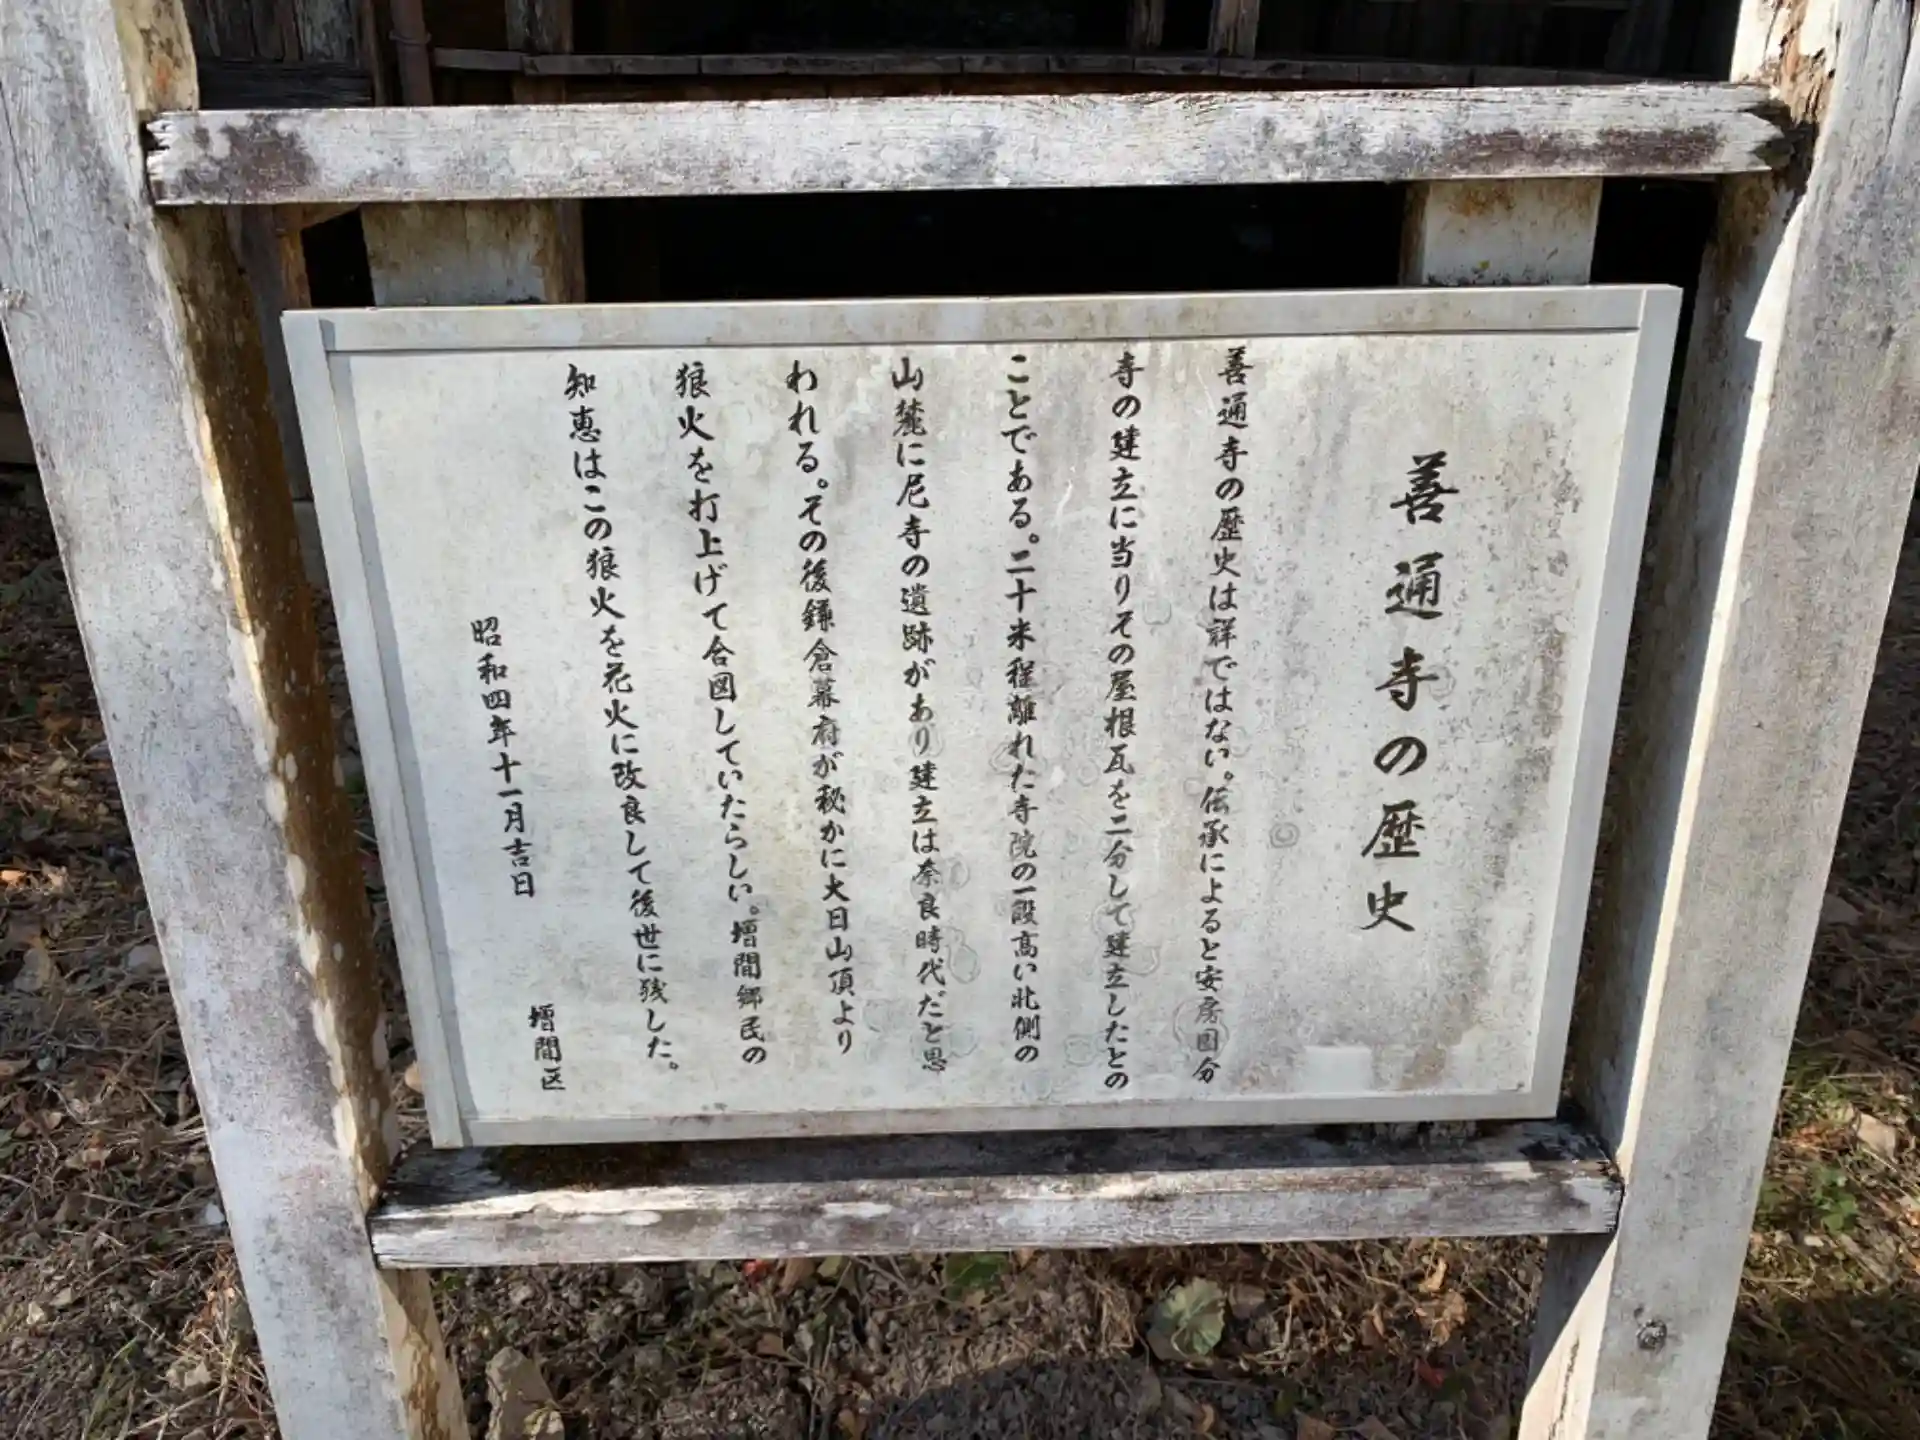 善通寺の歴史
善通寺の歴史は詳ではない。伝承によると安房国分
寺の建立に当りその屋根瓦を二分して建立したとの
ことである。二十米程離れた寺院の一段高い北側の
山麓に尼寺の遺跡があり建立は奈良時代だと思
われる。その後鎌倉幕府が秘かに大日山頂より
狼火を打上げて合図していたらしい。増間郷民の
知恵はこの狼火を花火に改良して後世に残した。
昭和四年十一月吉日
増間区